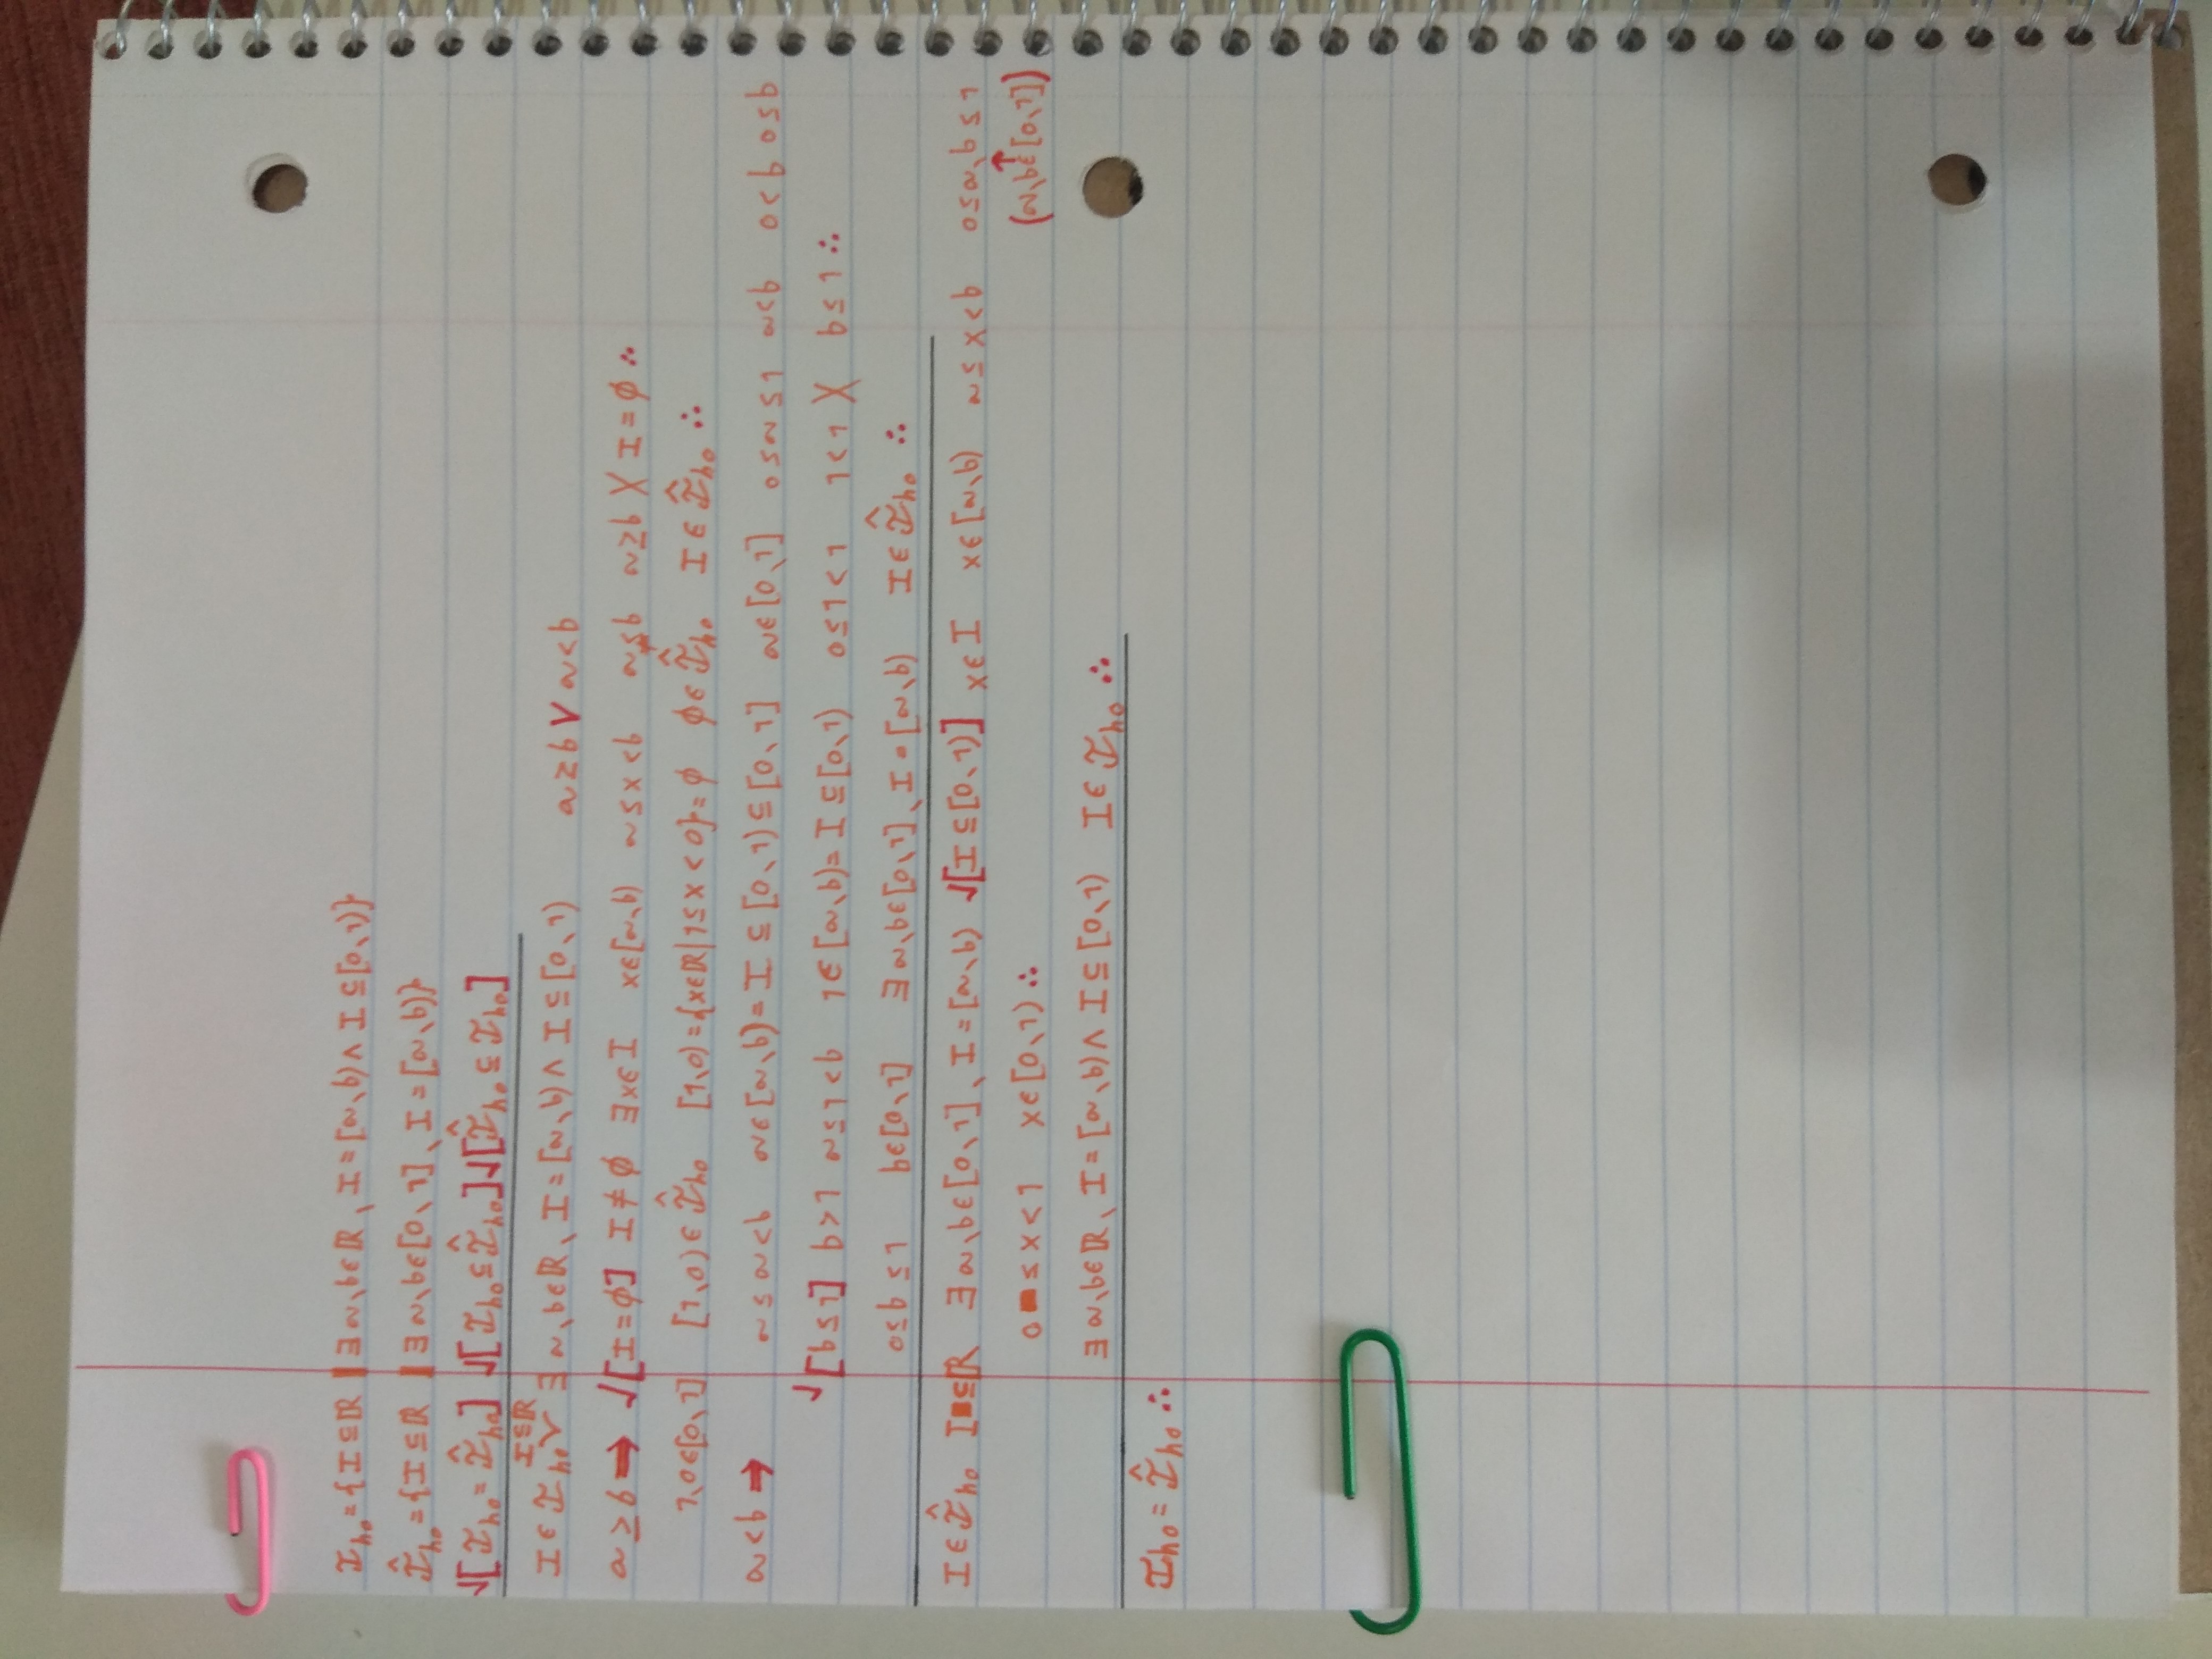 𝓘ₕₒ={I⊆ℝ | ∃a,b∈ℝ, I=[a,b) ∧ I⊆[0,1)}
𝓘̂ₕₒ={I⊆ℝ | ∃a,b∈[0,1], I=[a,b)}
√[𝓘ₕₒ=𝓘̂ₕₒ] √[𝓘ₕₒ⊆𝓘̂ₕₒ] √[𝓘̂ₕₒ⊆𝓘ₕₒ]
I⊆ℝ
I∈𝓘ₕₒ ∃a,b∈ℝ, I=[a,b) ∧ I⊆[0,1) a≥b ∨ a<b
a≥b → √[I=∅] I≠∅ ∃x∈I x∈[a,b) a≤x<b a≤b a≥b X I=∅ ∴
1,0∈[0,1] [1,0)∈𝓘̂ₕₒ [1,0)={x∈ℝ|1≤x<0}=∅ ∅∈𝓘̂ₕₒ I∈𝓘̂ₕₒ ∴
a<b → a≤a<b a∈[a,b)=I⊆[0,1)⊆[0,1] a∈[0,1] 0≤a≤1 a<b 0<b 0≤b
√[b≤1] b>1 a≤1<b 1∈[a,b)=I⊆[0,1) 0≤1<1 1<1 X b≤1 ∴
0≤b≤1 b∈[0,1] ∃a,b∈[0,1], I=[a,b) I∈𝓘̂ₕₒ ∴
I∈𝓘̂ₕₒ I⊆ℝ ∃a,b∈[0,1], I=[a,b) √[I⊆[0,1)] x∈I x∈[a,b) a≤x<b 0≤a,b≤1
0≤x<1 x∈[0,1) ∴ (a,b∈[0,1])
↑
∃a,b∈ℝ, I=[a,b) ∧ I⊆[0,1) I∈𝓘ₕₒ ∴
𝓘ₕₒ=𝓘̂ₕₒ ∴